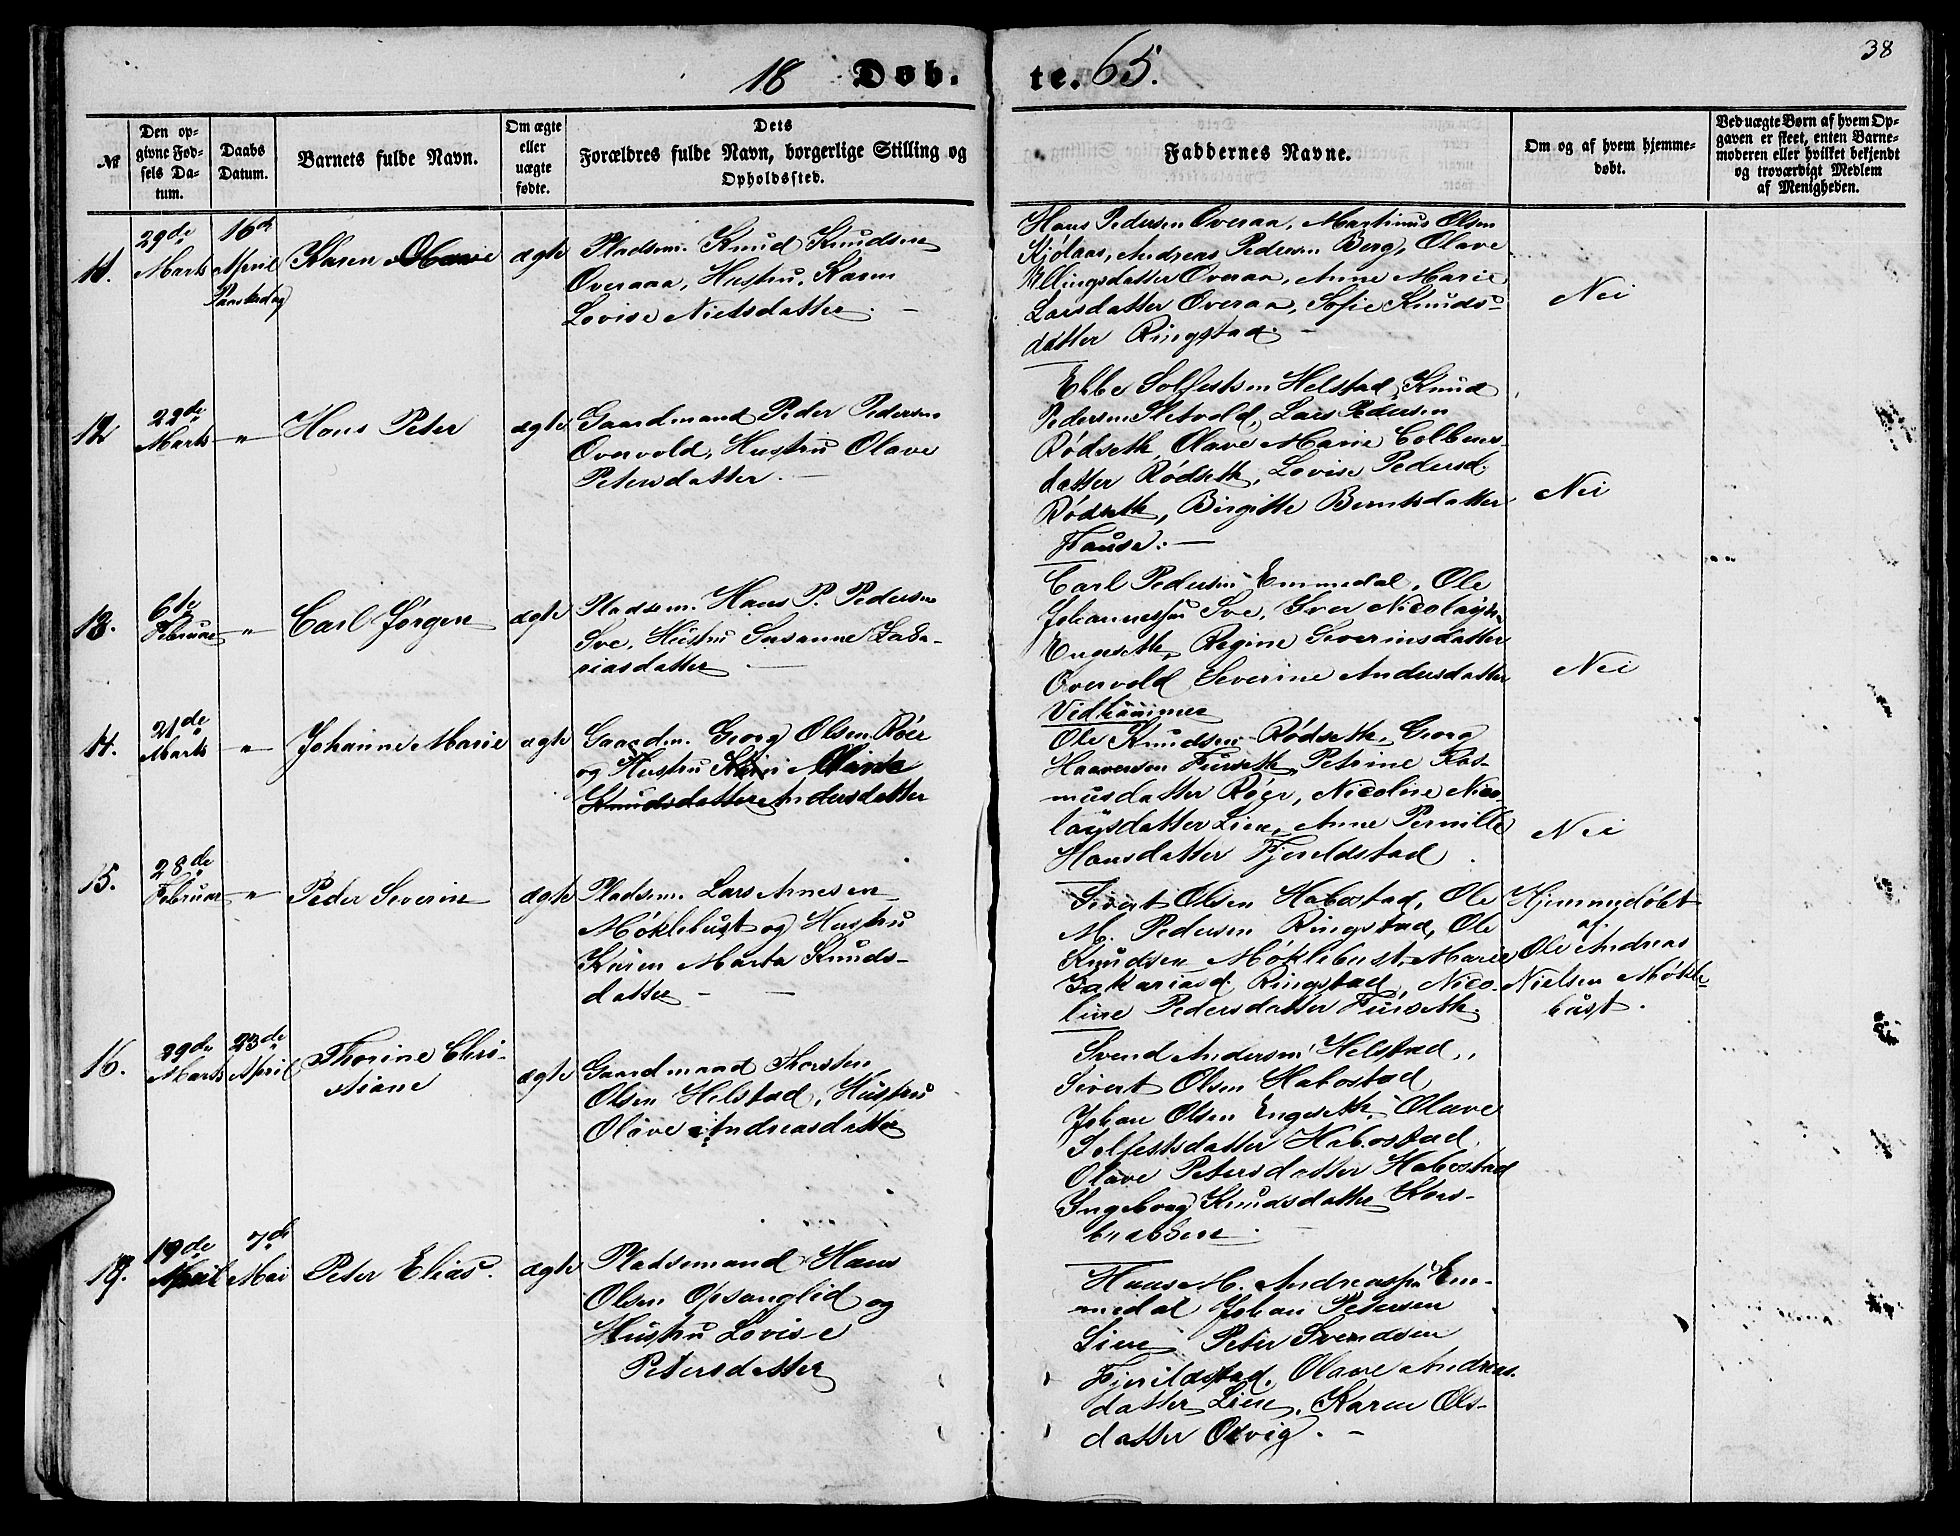 38
18 Døb- te. 65.
№
Den opgivne Fødsels Datum.
Daabs Datum.
Barnets fulde Navn.
Om ægte eller uægte fødte.
Dets Forældres fulde Navn, borgerlige Stilling og Opholdssted.
Faddernes Navne.
Om og af hvem hjemmedøbt.
Ved uægte Børn af hvem Opgaven er skeet, enten Barnemoderen eller hvilket bekjendt og troværdigt Medlem af Menigheden.
11.
29de
Marts
16de
April
Paaskedag
Karen Olave
ægte
Pladsm. Knud Knudsen
Overaaa, Hustru, Karen
Lovise Nielsdatter. —
Hans Pedersen Overaa, Martinus Olsen
Kjølaas, Andreas Pedersen Berg, Olave
Ellingsdatter Overaa, Anne Marie
Larsdatter Overaa, Sofie Knuds-
datter Ringstad. —
Nei
12
22de
Marts
"
Hans Peter
ægte
Gaardmand Peder Pedersen
Overvold, Hustru Olave
Petersdatter. —
Ebbe Solfestsen Helstad, Knud
Pedersen Sletvold, Lars Pedersen
Rødseth, Olave Marie Colbens-
datter Rødseth, Lovise Pedersd.
Rødseth, Birgitte Berntsdatter
Hause. —
Nei
13.
6te
Februar
"
Carl Jørgen
ægte
Pladsem. Hans P. Pedersen
Sve, Hustru Susanne Saka-
riasdatter —
Carl Pedersen Emmedal, Ole
Johannessen Sve, Iver Nicolaysen
Engeseth, Regine Severinsdatter
Overvold, Severine Andersdatter
Vidhammer
Nei
14.
21de
Marts
"
Johanne Marie
ægte
Gaardm. Georg Olsen Røer
og Hustru Karen Olave
Knudsdatter Andersdatter
Ole Knudsen Rødseth, Georg
Haaversen Furseth, Petrine Ras-
musdatter Røer, Nicoline Nico-
laysdatter Lien, Anne Pernille
Hansdatter Fjeldstad.
Nei
15.
28de
Februar
"
Peder Severin
ægte
Pladsem. Lars Arnesen
Møklebust og Hustru
Karen Marta Knuds-
datter —
Sivert Olsen Habostad, Ole
M. Pedersen Ringstad, Ole
Knudsen Møklebust, Marie
Zakariasd. Ringstad, Nico-
line Pedersdatter Furseth.
Hjemmedøbt
af
Ole Andreas
Nielsen Møkle-
bust.
16.
29de
Marts
23de
April
Thorine Chri-
stiane
ægte
Gaardmand Thorsten
Olsen Helstad, Hustru
Olave Andreasdatter
Svend Andersen Helstad,
Sivert Olsen Habostad,
Johan Olsen Engeseth, Olave
Solfestsdatter Habostad,
Olave Petersdatter Habostad
Ingeborg Knudsdatter Kors-
brækken
17.
19de
April
7de
Mai
Peter Elias.
ægte
Pladsemand Hans
Olsen Opsanglid og
Hustru Lovise
Petersdatter
Hans M. Andreassen Em-
medal Johan Petersen
Lien Peter Svendsen
Fjeildstad, Olave Andreas-
datter Lien, Karen Ols-
datter Orvig. —